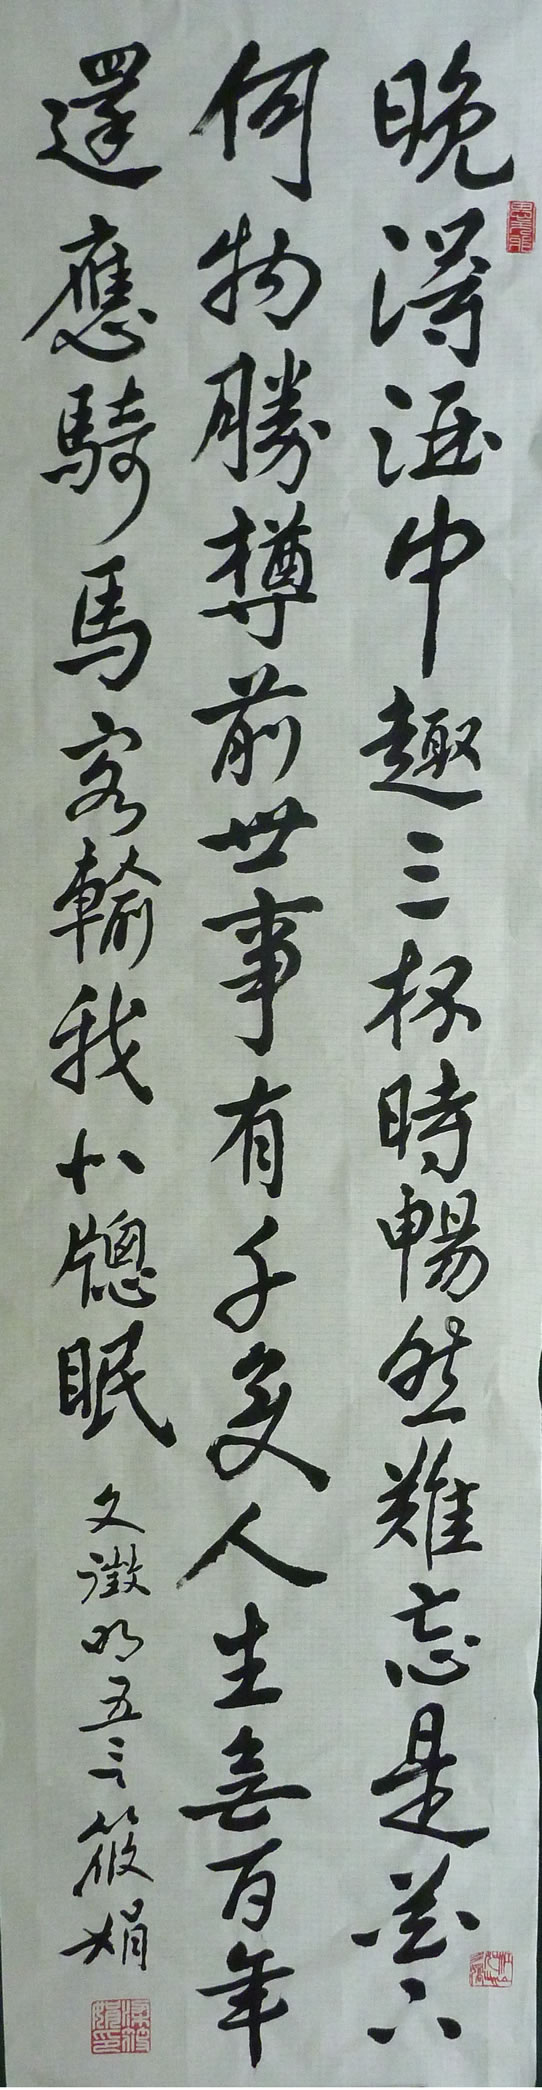 晚得酒中趣三杯時暢然難忘是花下
何物勝樽前世事有千變人生無百年
還應騎馬客輸我北窗眠
文徵明五言筱娟